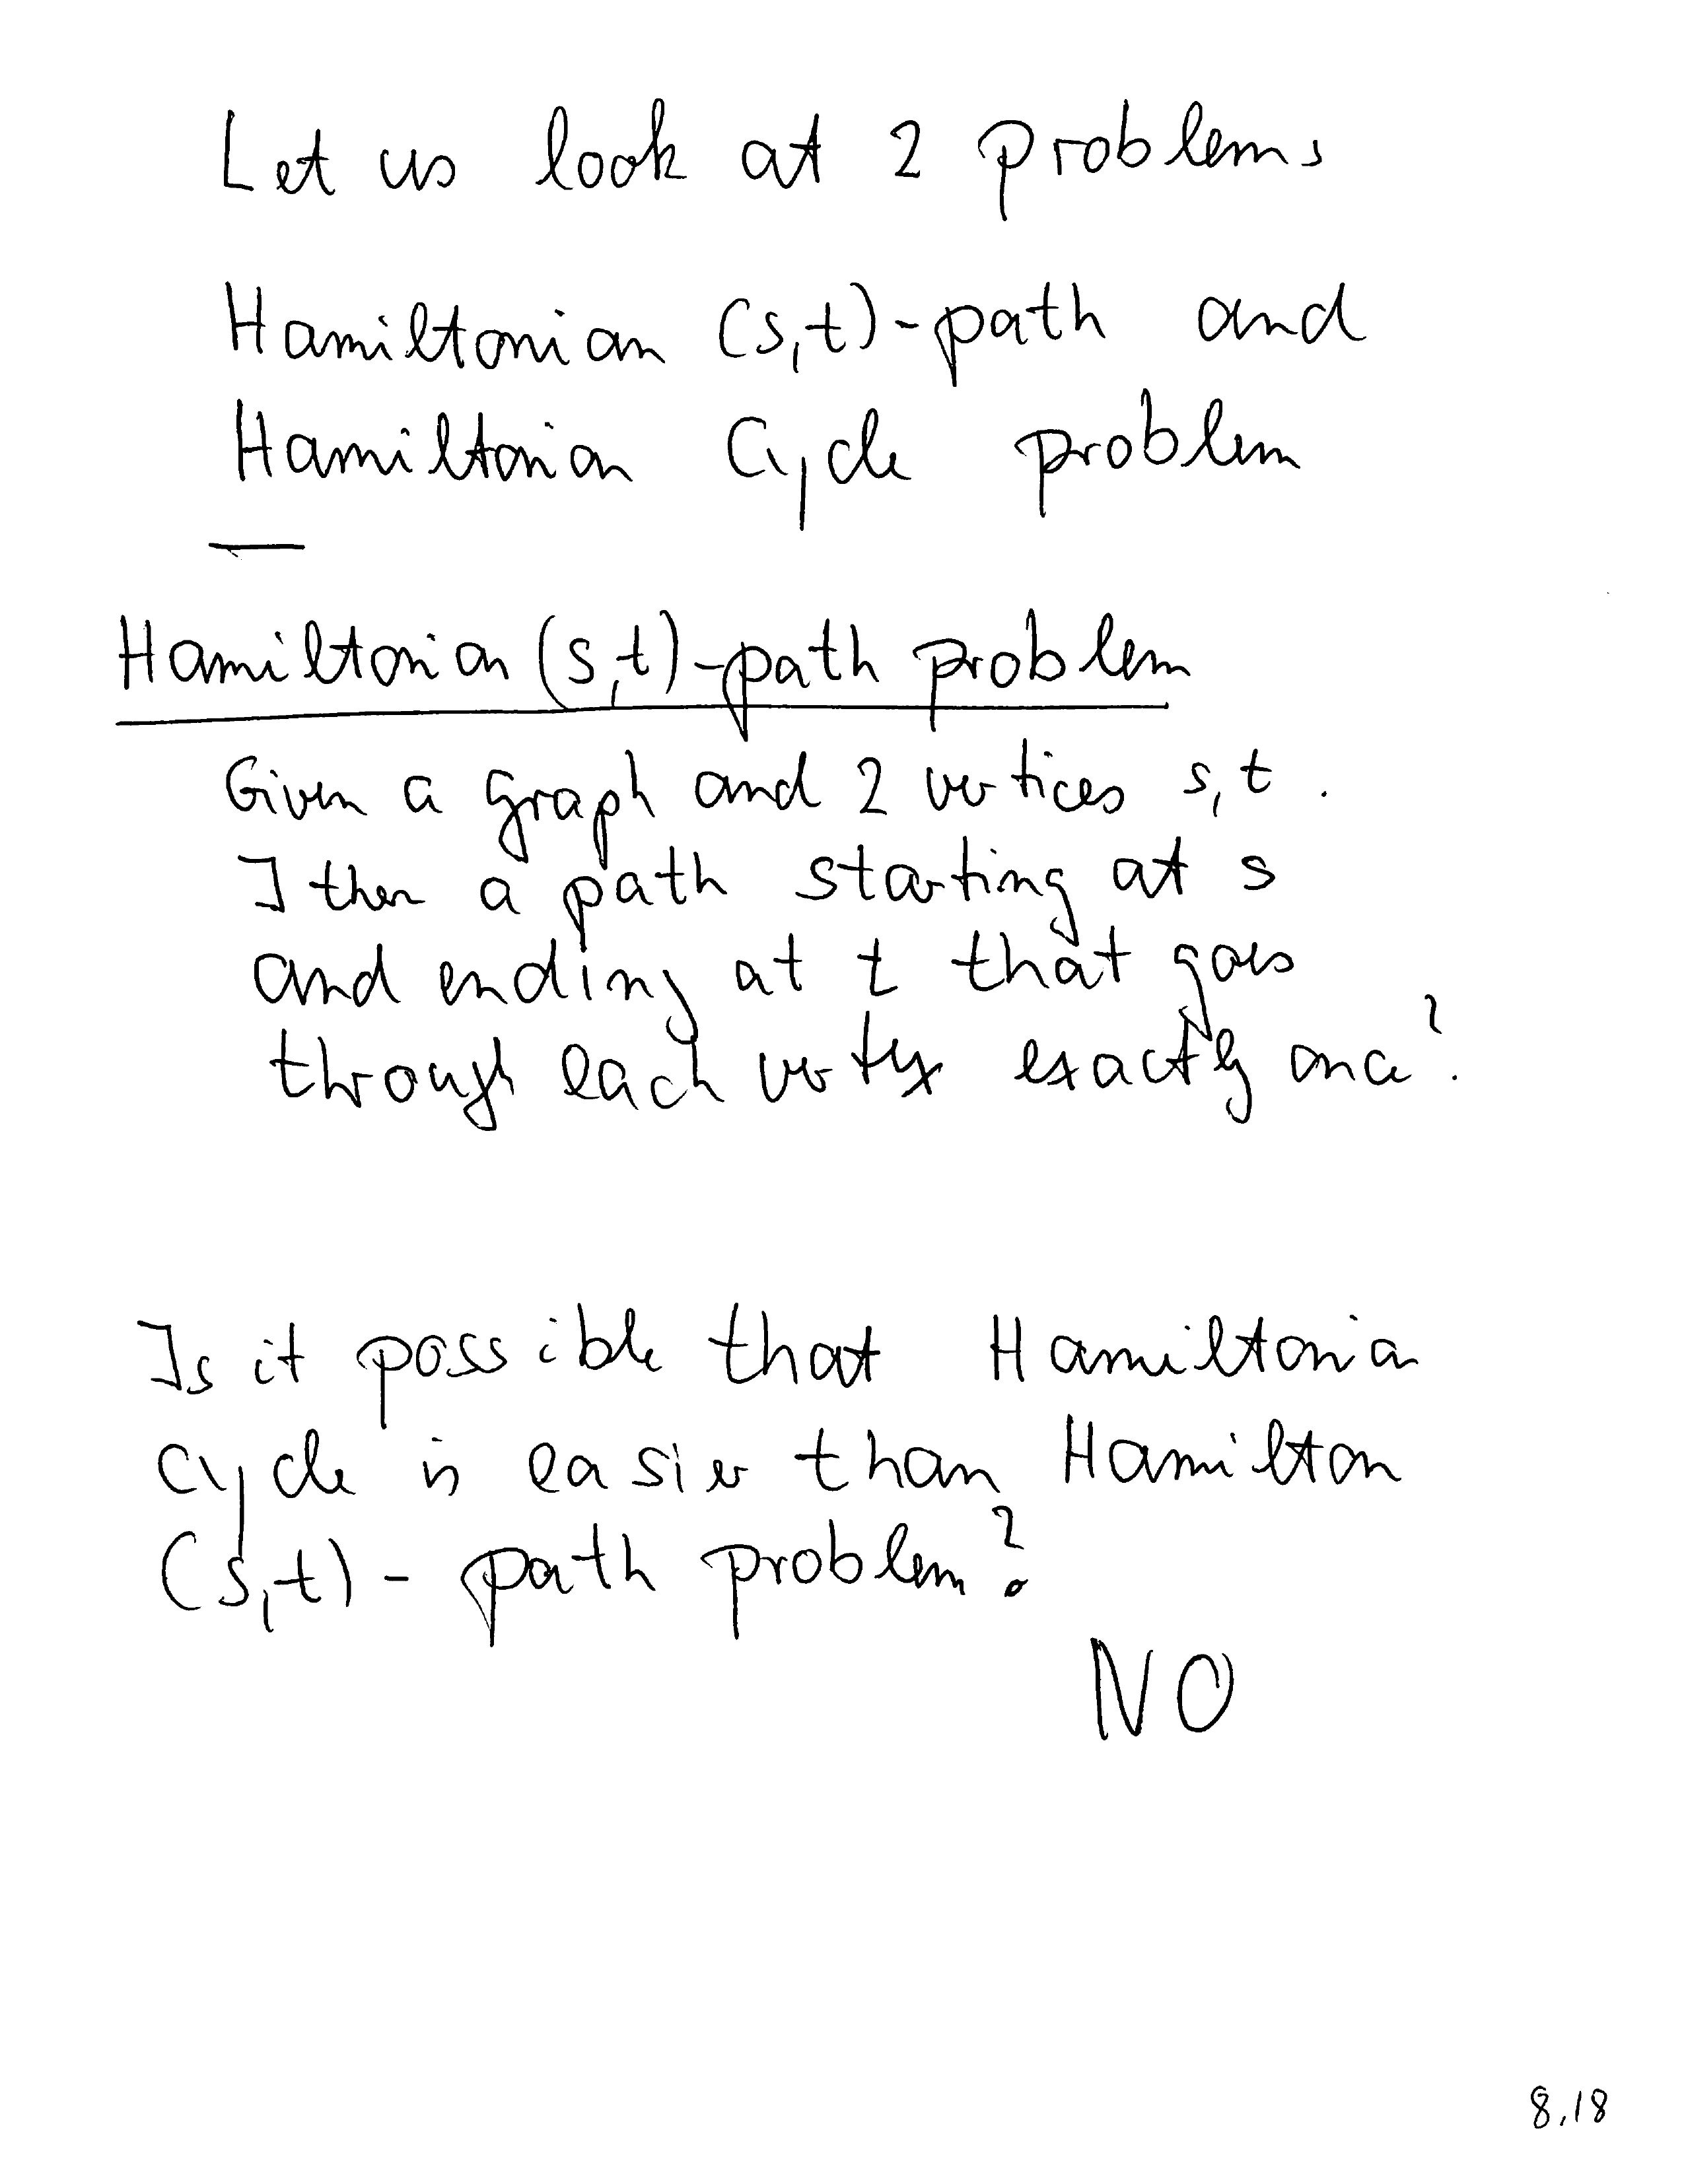 Let us look at 2 problems
Hamiltonian (s,t)-path and
Hamiltonian Cycle problem
Hamiltonian (s,t)-path problem
Given a graph and 2 vertices s,t.
I ther a path starting at s
and ending at t that goes
through each vertex exactly once?
Is it possible that Hamiltonian
cycle is easier than Hamilton
(s,t)- path problem?
NO
8.18